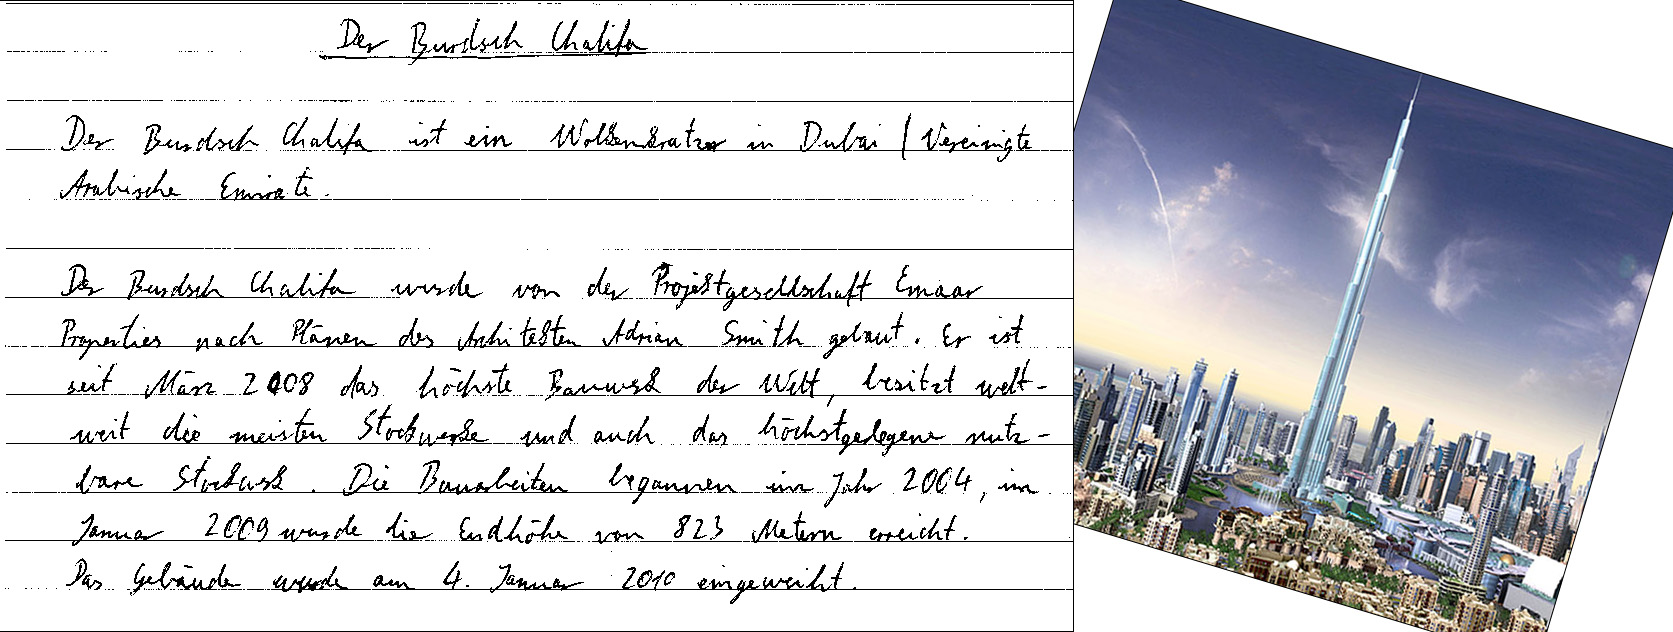 Der Burdsch Chalifa
Der Burdsch Chalifa ist ein Wolkenkratzer in Dubai / Vereinigte
Arabische Emirate.
Der Burdsch Chalifa wurde von der Projektgesellschaft Emaar
Properties nach Plänen des Architekten Adrian Smith gebaut. Er ist
seit März 2008 das höchste Bauwerk der Welt, besitzt welt-
weit die meisten Stockwerke und auch das höchstgelegene nutz-
bare Stockwerk. Die Bauarbeiten begannen im Jahr 2004, im
Januar 2009 wurde die Endhöhe von 823 Metern erreicht.
Das Gebäude wurde am 4. Januar 2010 eingeweiht.